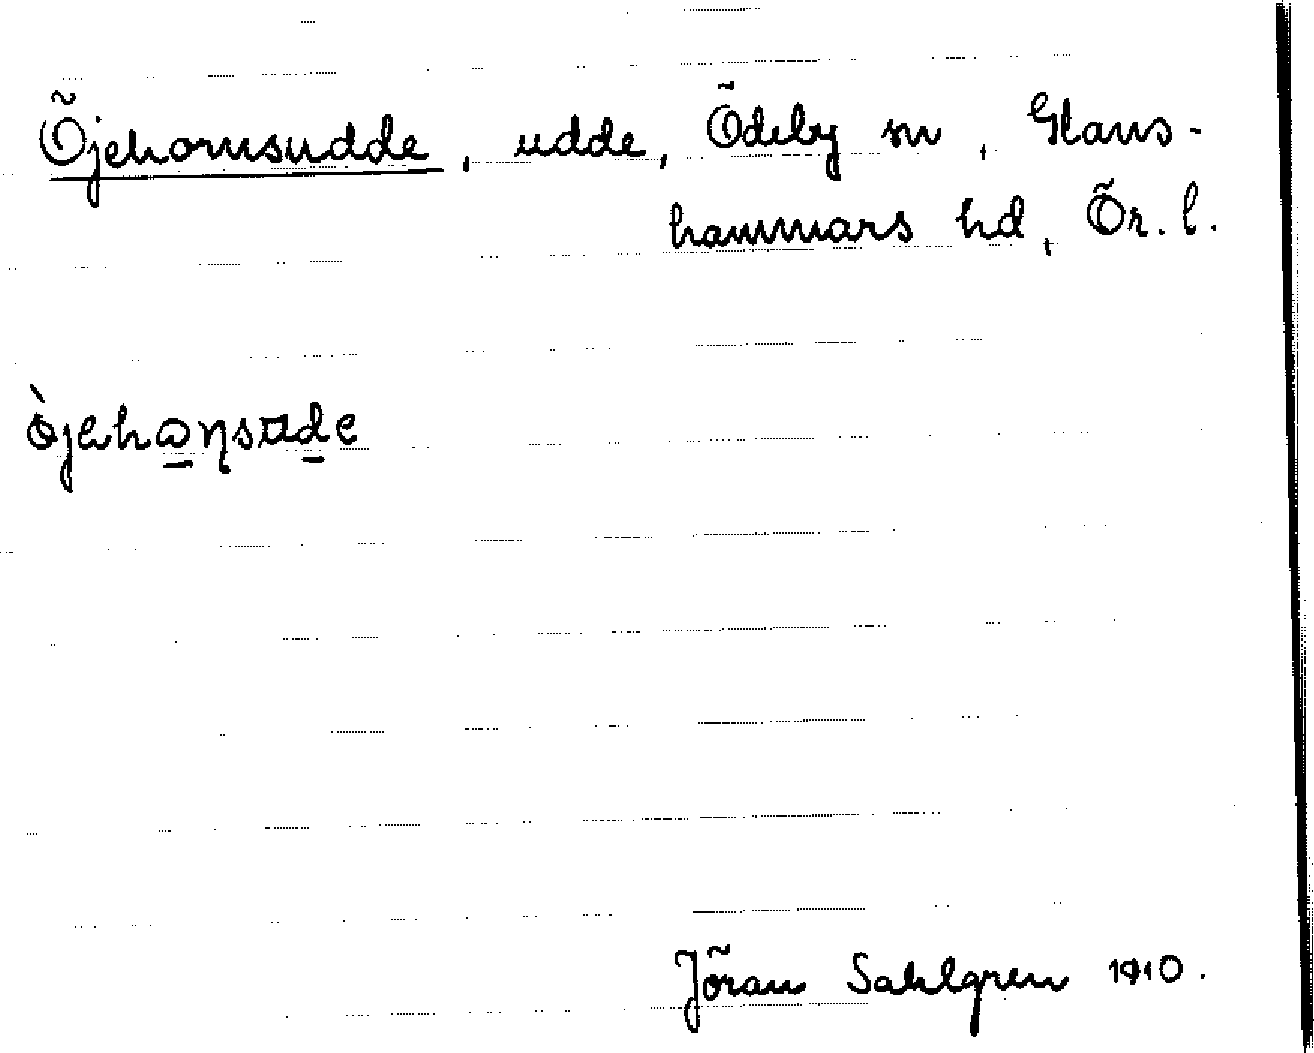 Öjehornsudde, udde, Ödeby sn, Glans-
hammars hd, Ör. l.
öjehɷɳsude
Jöran Sahlgren 1910.